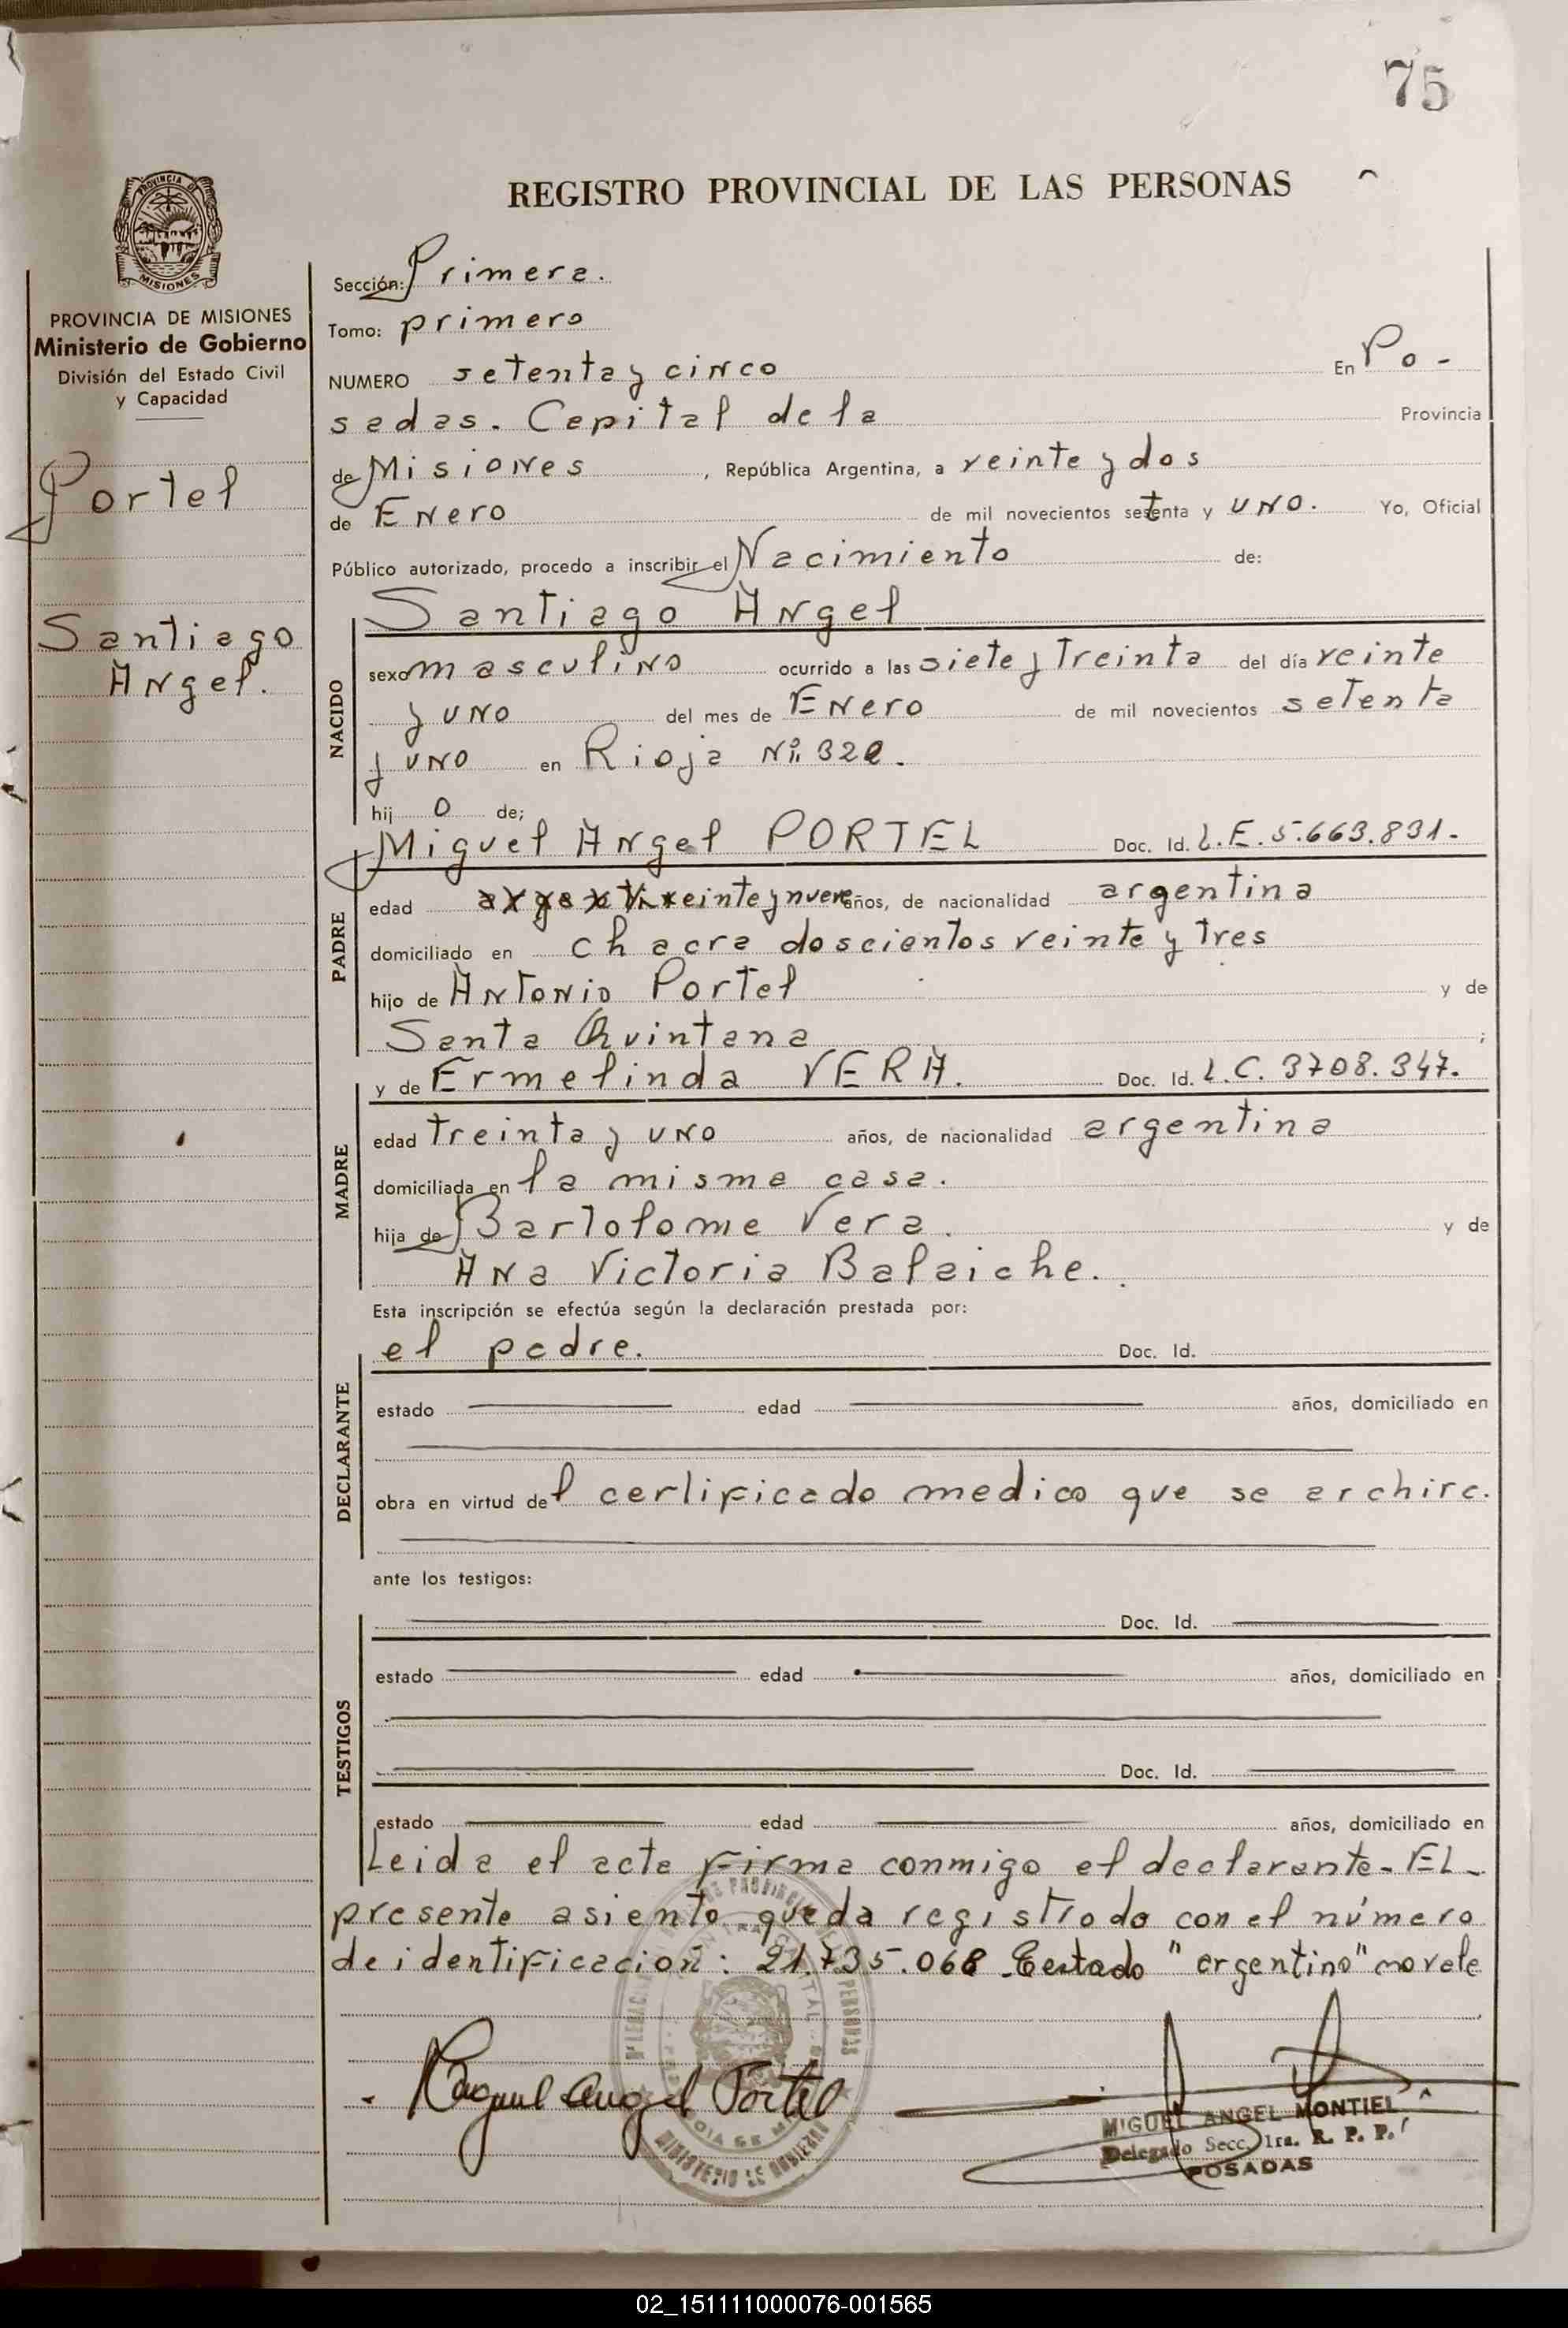 75
REGISTRO PROVINCIAL DE LAS PERSONAS
PROVINCIA DE MISIONES
Ministerio de Gobierno
División del Estado Civil
y Capacidad
Portel
Santiago
Angel.
Sección: Primera.
Tomo: primero
NUMERO setenta y cinco En Po-
sadas. Capital de la Provincia
de Misiones, República Argentina, a veinte y dos
de Enero de mil novecientos setenta y uno. Yo, Oficial
Público autorizado, procedo a inscribir el Nacimiento de:
Santiago Angel
NACIDO
sexo masculino ocurrido a las siete y Treinta del día veinte
y uno del mes de Enero de mil novecientos setenta
y uno en Rioja Nº 322.
hij o de;
Miguel Angel PORTEL Doc. Id. L.E. 5.663.831.
PADRE
edad veinte y nueve años, de nacionalidad argentina
domiciliado en chacra doscientos veinte y Tres
hijo de Antonio Portel y de
Santa Quintana ;
y de Ermelinda VERA. Doc. Id. L.C. 3708.347.
MADRE
edad treinta y uno años, de nacionalidad argentina
domiciliada en la misma casa.
hija de Bartolome Vera. y de
Ana Victoria Balaiche.
Esta inscripción se efectúa según la declaración prestada por:
el padre. Doc. Id.
DECLARANTE
estado edad años, domiciliado en
obra en virtud del certificado medico que se archiva.
ante los testigos:
Doc. Id.
TESTIGOS
estado edad años, domiciliado en
Doc. Id.
estado edad años, domiciliado en
Leida el acta firma conmigo el declarante- EL-
presente asiento queda registrado con el número
de identificación: 21.735.068. Testado "argentino" no vale
Miguel Angel Portel
MIGUEL ANGEL MONTIEL
Delegado Secc. 1ra. R. P. P.
POSADAS
02_151111000076-001565